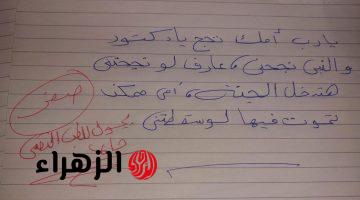 يارب أمك يا دكتور
والنبي نجحني، عارف لو نجحتني
هتدخل الجنة، أمي ممكن
تموت فيها لو سقطتني
صفر
يحول للطب النفسي
الزهراء